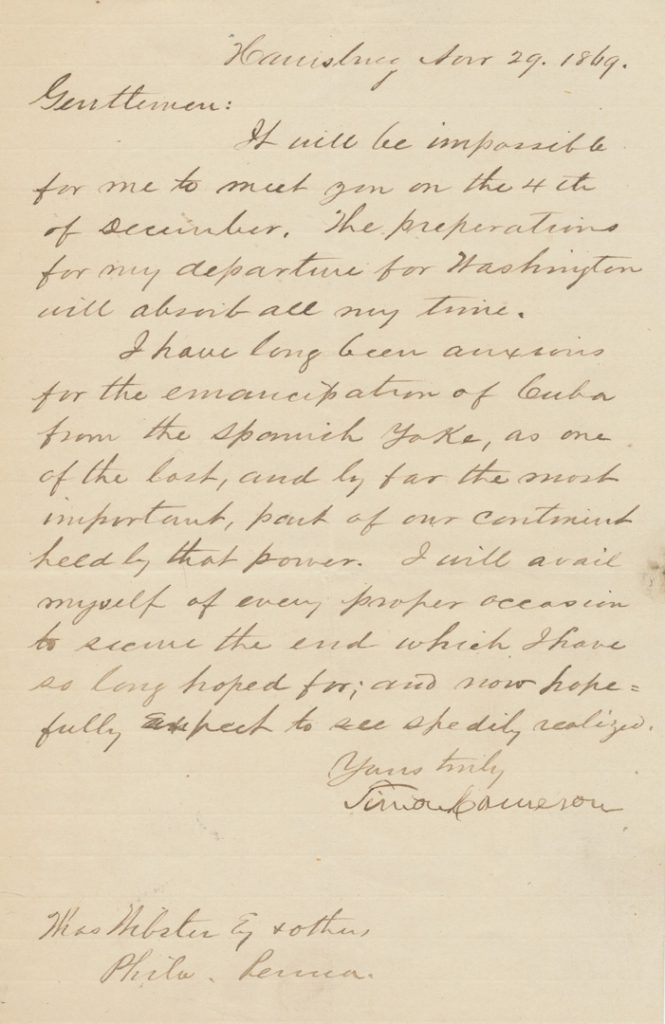 Harrisburg Nov 29. 1869.
Gentlemen:
It will be impossible
for me to meet you on the 4th
of December. The preperations
for my departure for Washington
will absorb all my time.
I have long been anxious
for the emancipation of Cuba
from the Spanish Yoke, as one
of the last, and by far the most
important, part of our continent
held by that power. I will avail
myself of every proper occasion
to secure the end which I have
so long hoped for; and now hope=
fully expect to see spedily realized.
Yours truly
Simon Cameron
Thos Webster Esq & others
Phila. Penna.